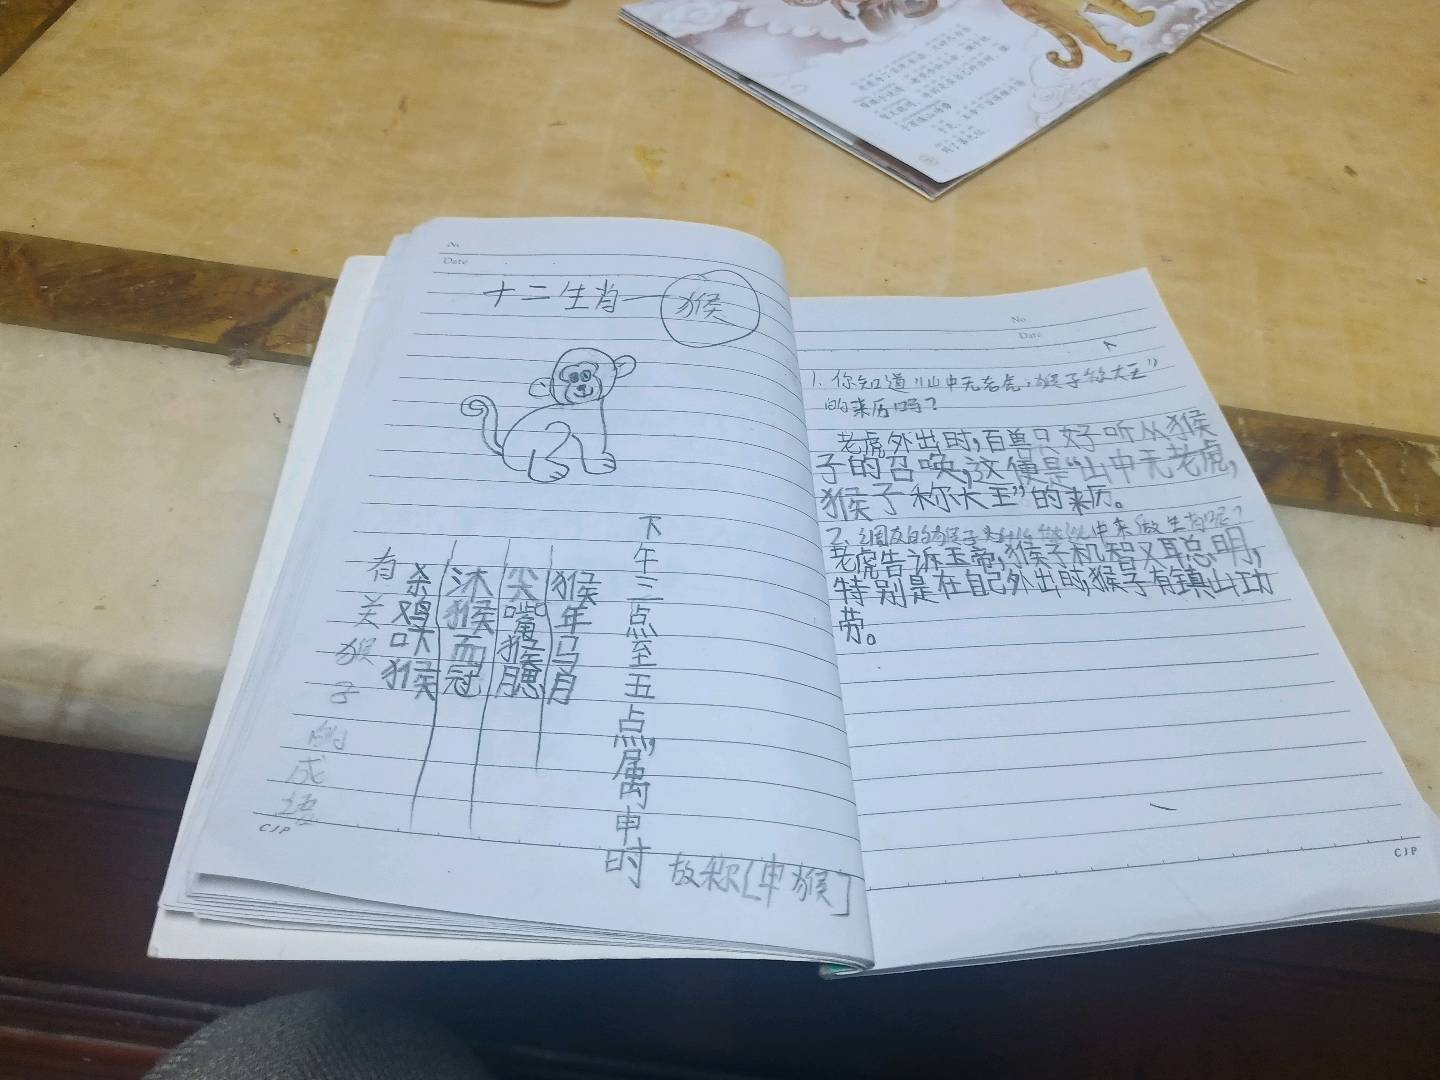 No.
Date
十二生肖—猴
下午三点至五点,属申时
故称[申猴]
猴年马月
尖嘴猴腮
沐猴而冠
杀鸡吓猴
有关猴子的成语
CJP
No.
Date
1. 你知道“山中无老虎,猴子称大王”
的来历吗?
老虎外出时,百兽只好听从猴
子的召唤,这便是“山中无老虎,
猴子称大王”的来历。
2、
老虎告诉玉帝,猴子机智又聪明,
特别是在自己外出时,猴子有镇山功
劳。
CJP